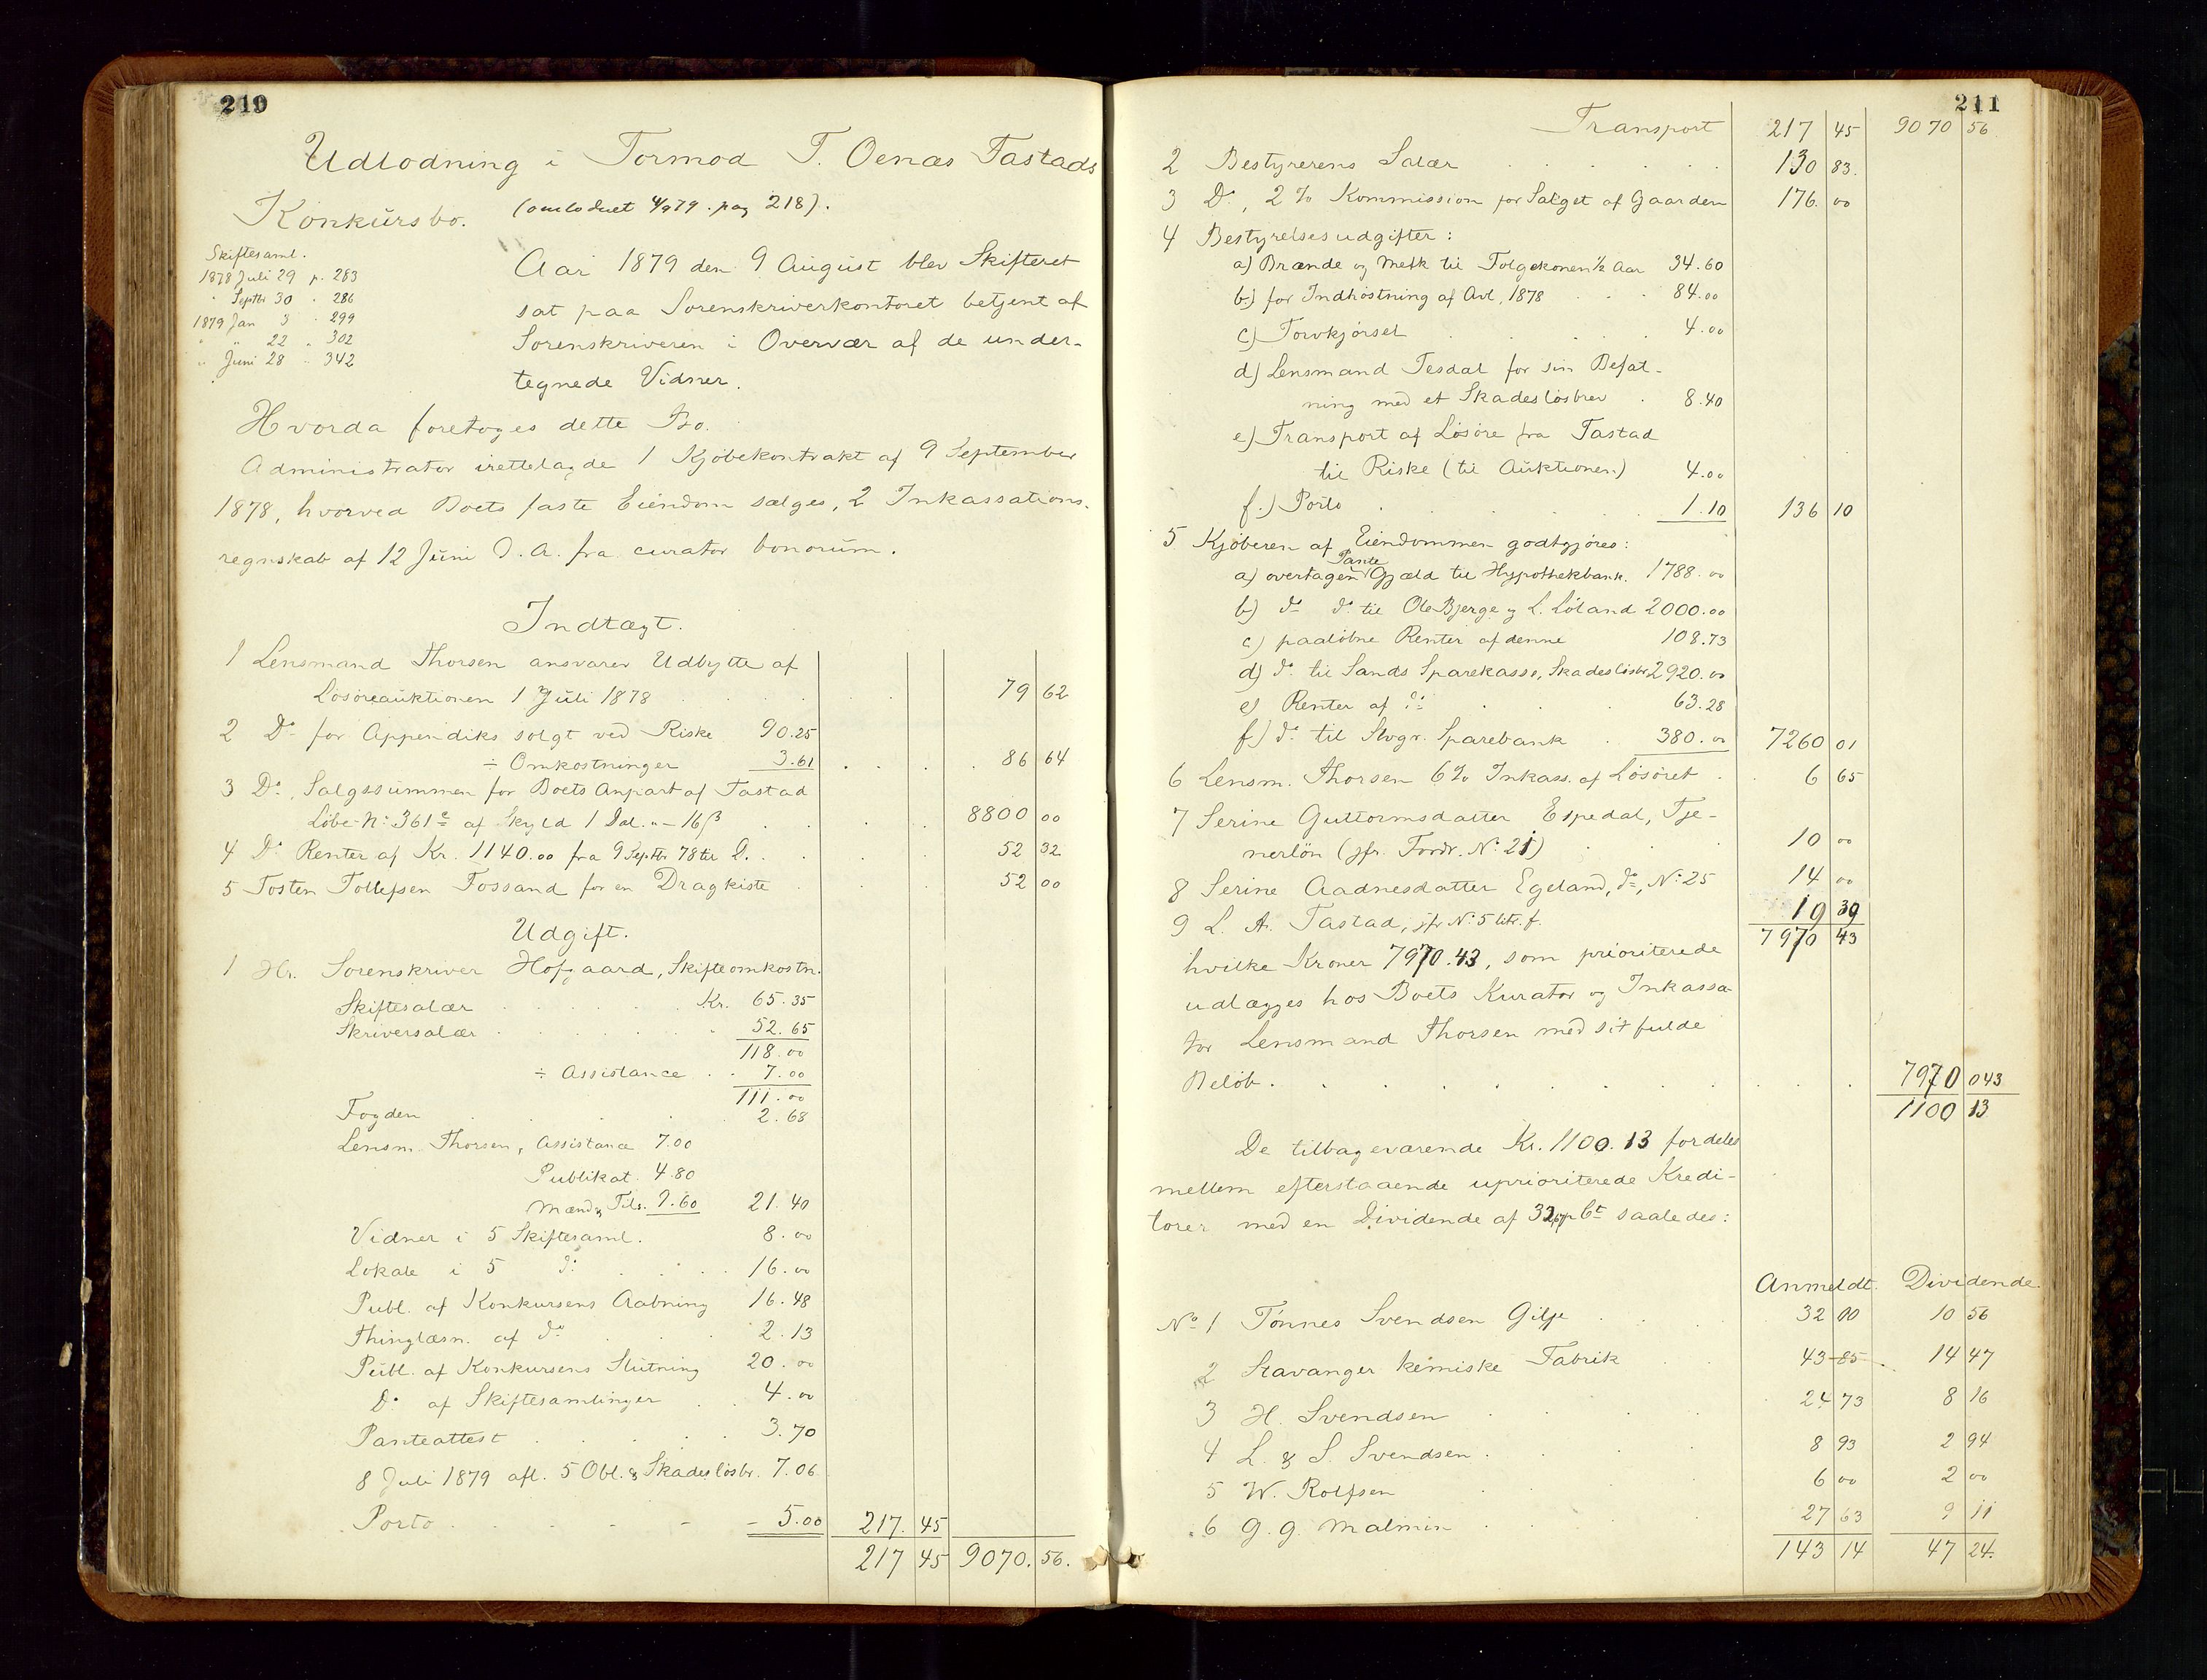 210
Udlodning i Tormod T. Oenæs Tastads
Konkursbo. (omlodnet 4/9 79. pag 218).
Skiftesaml.
1878 Juli 29 p. 283
" Septbr 30 " 286
1879 Jan 3 " 299
" " 22 " 302
" Juni 28 " 342
Aar 1879 den 9 August blev Skifteret
sat paa Sorenskriverkontoret betjent af
Sorenskriveren i Overvær af de under-
tegnede Vidner.
Hvorda foretoges dette Bo.
Administrator irettelagde 1 Kjøbekontrakt af 9 September
1878, hvorved Boets faste Eiendom sælges, 2 Inkassations-
regnskab af 12 Juni d. A. fra curator bonorum.
Indtægt.
1 Lensmand Thorsen ansvarer Udbytte af
Løsøreauktionen 1 Juli 1878 79 62
2 Do for Appendiks solgt ved Riske 90.25
÷ Omkostninger 3.61 86 64
3 Do, Salgssummen for Boets Anpart af Tastad
Løbe-No 361c af Skyld 1 Dal. " - 16 β 8800 00
4 Do Renter af Kr. 1140.00 fra 9 Septbr 78 til D. 52 32
5 Tosten Tollefsen Fossand for en Dragkiste 52 00
Udgift.
1 Hr. Sorenskriver Hofgaard, Skifteomkostn.
Skiftesalær Kr. 65.35
Skriversalær " 52.65
118.00
÷ Assistance 7.00
111.00
Fogden 2.68
Lensm. Thorsen, Assistance 7.00
Publikat. 4.80
Mænd, Tils. 9.60 21.40
Vidner i 5 Skiftesaml. 8.00
Lokale i 5 do 16.00
Publ. af Konkursens Aabning 16.48
Thinglæsn. af do 2.13
Publ. af Konkursens Slutning 20.00
Do af Skiftesamlinger 4.00
Panteattest 3.70
8 Juli 1879 afl. 5 Obl. & Skadesløsbr. 7.06
Porto 5.00 217. 45
217 45 9070. 56.
211
Transport 217 45 9070 56
2 Bestyrerens Salær 130 83.
3 Do, 2 % Kommission for Salget af Gaarden 176. 00
4 Bestyrelsesudgifter:
a) Brænde og Melk til Folgekonen 1/2 Aar 34.60
b) for Indhøstning af Avl, 1878 84.00
c) Torvkjørsel 4.00
d) Lensmand Tesdal for sin Befat-
ning med et Skadesløsbrev 8.40
e) Transport af Løsøre fra Tastad
til Riske (til Auktionen) 4.00
f.) Porto 1.10 136 10
5 Kjøberen af Eiendommen godtgjøres:
a) overtagen Pante Gjæld til Hypothekbank. 1788.00
b) do do til Ole Bjerge og L. Løland 2000.00
c) paaløbne Renter af denne 108.73
d) do til Sands Sparekasse, Skadesløsbr 2920.00
e) Renter af do 63.28
f) do til Stvgr. Sparebank 380.00 7260 01
6 Lensm. Thorsen 6 % Inkass. af Løsøret 6 65
7 Serine Guttormsdatter Espedal, Tje-
nerløn (jfr. Fordr. No 21) 10 00
8 Serine Aadnesdatter Egeland, do, No 25 14 00
9 L. A. Tastad, jfr No 5 litr. f. 19 39
7970 43
hvilke Kroner 7970.43, som prioriterede
udlægges hos Boets Kurator og Inkassa-
tor Lensmand Thorsen med sit fulde
Beløb. 7970 43
1100 13
De tilbageværende Kr. 1100.13 fordeles
mellem efterstaaende uprioriterede Kredi-
torer med en Dividende af 33 pCt saaledes:
Anmeldt. Dividende.
No 1 Tønnes Svendsen Gilje 32 00 10 56
2 Stavanger kemiske Fabrik 43 85 14 47
3 H. Svendsen 24 73 8 16
4 L. & S. Svendsen 8 93 2 94
5 W. Rolfsen 6 00 2 00
6 G. G. Malmin 27 63 9 11
143 14 47 24.